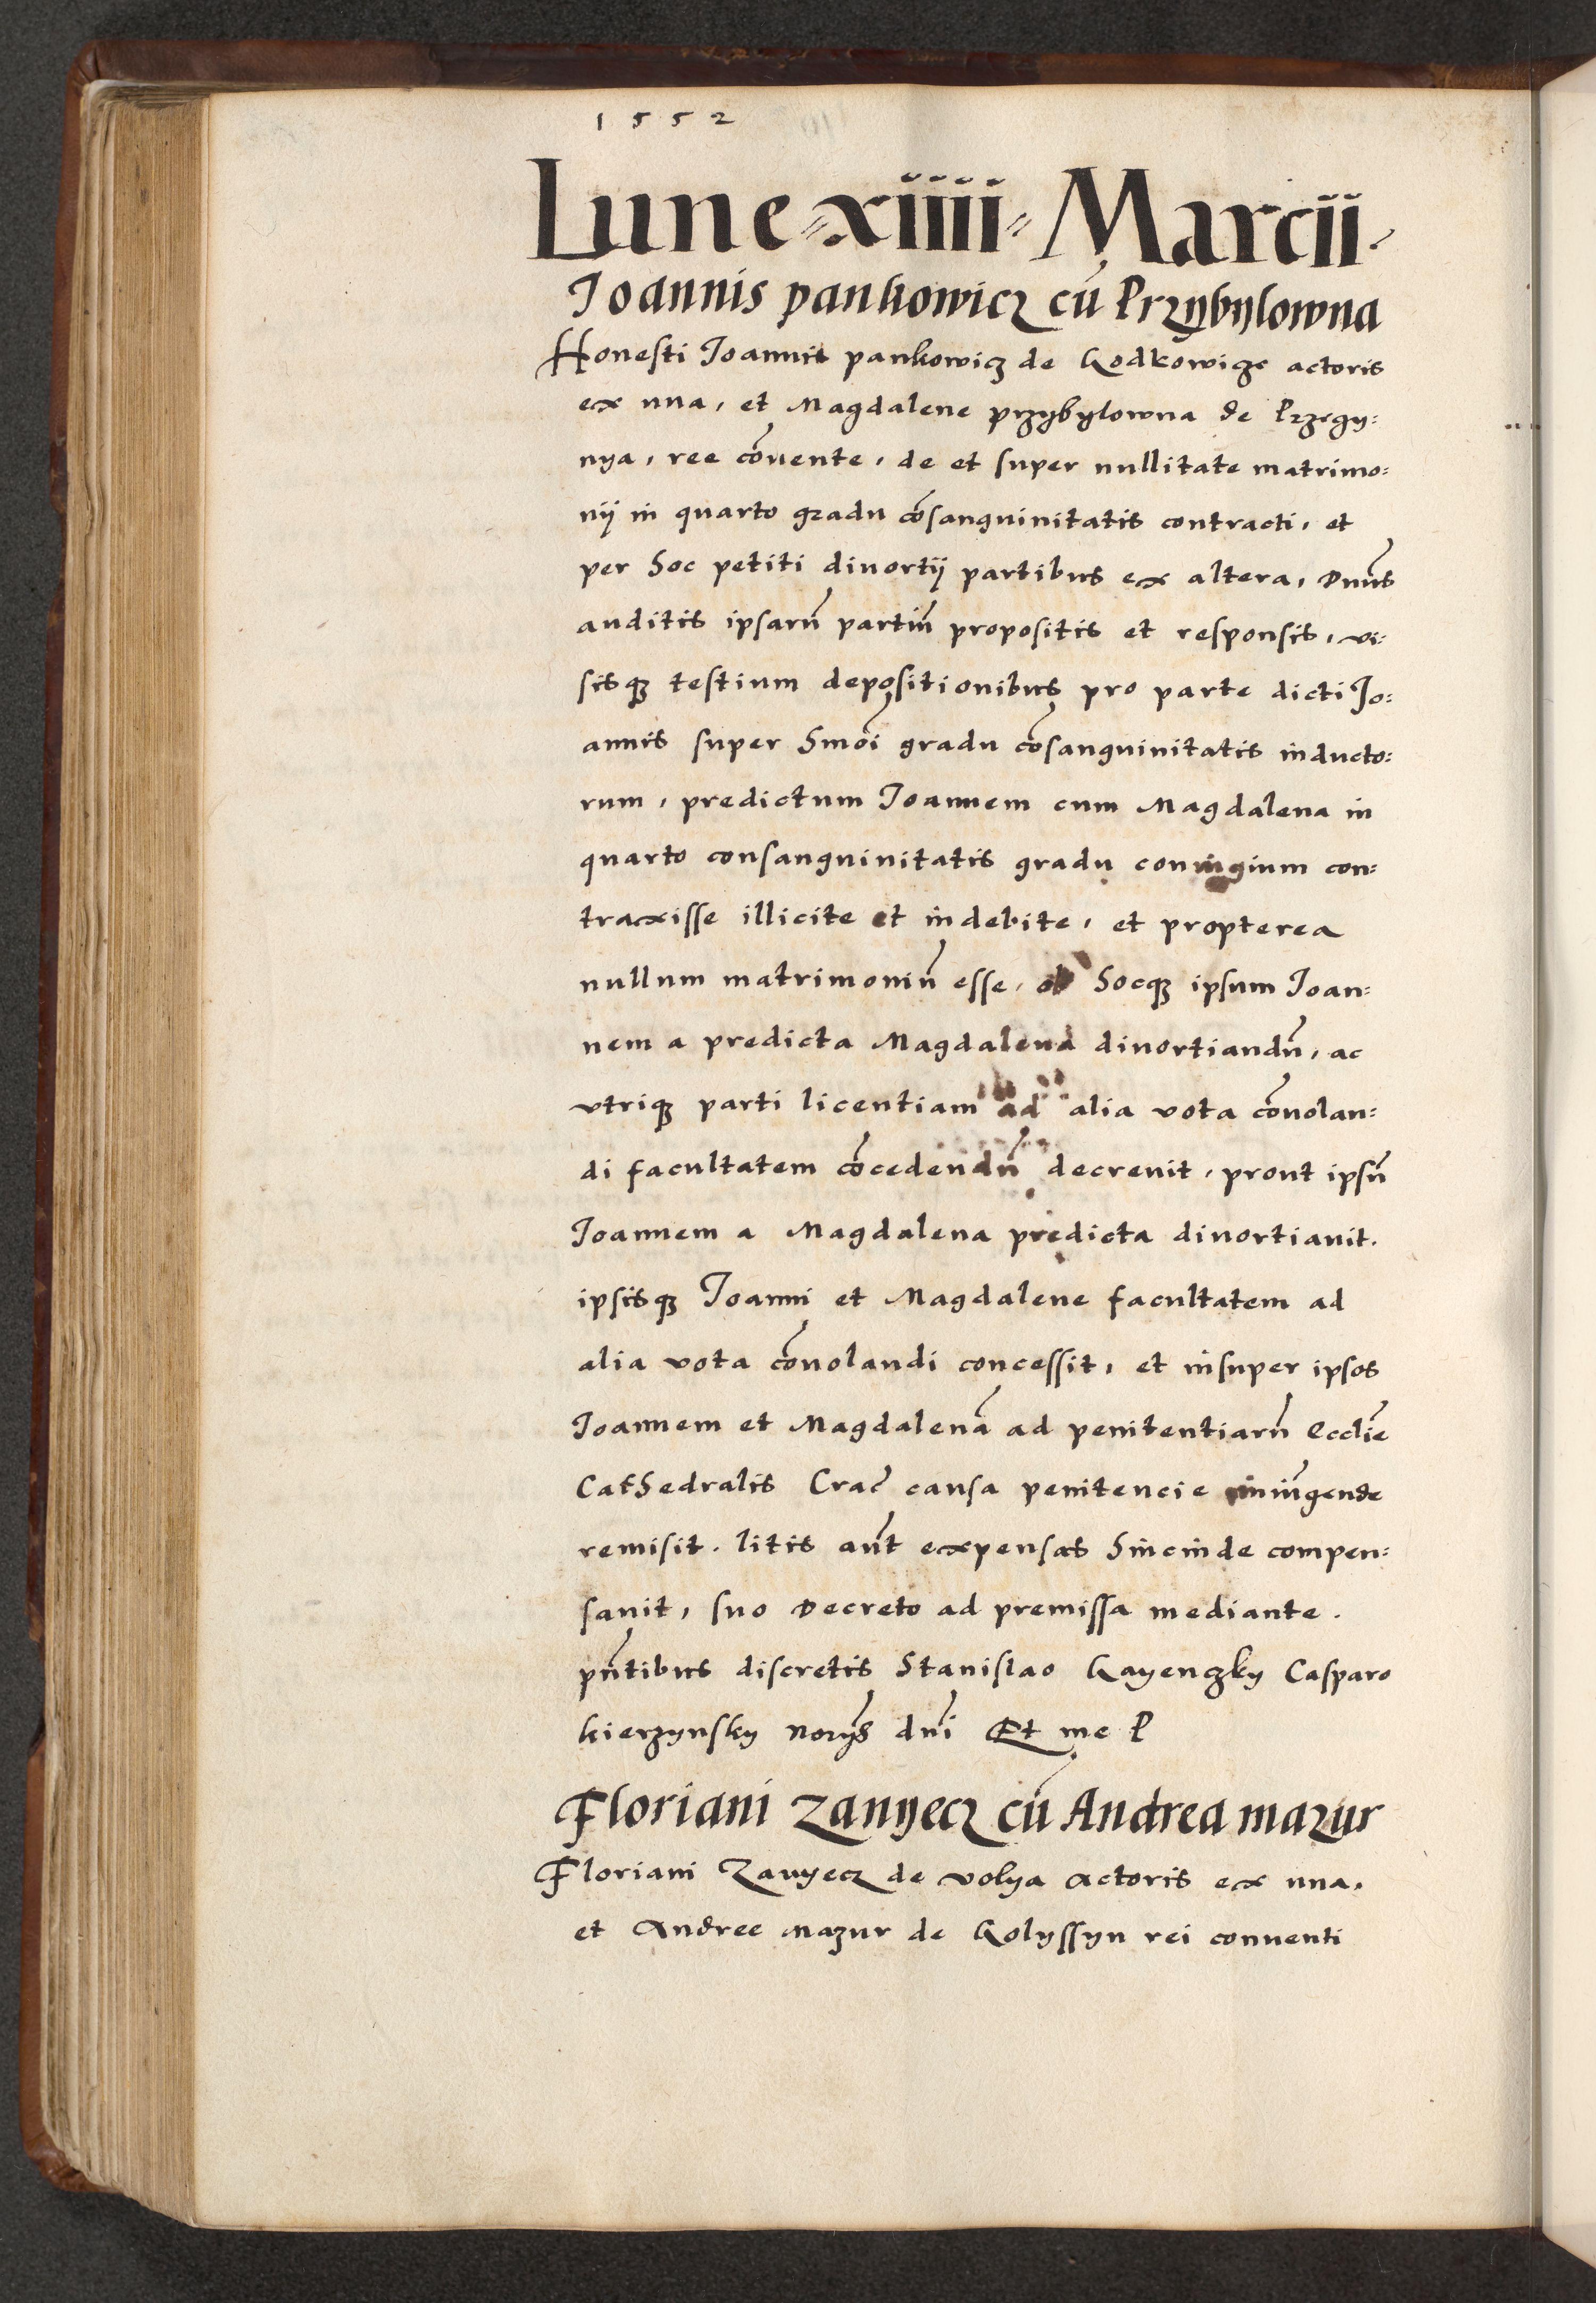 1552
Lune xiiii Marcii
Joannis pankowicz cū Przybylowna
Honesti Joannis pankowicz de Kodkowicze actoris
ex una, et Magdalene przybylowna de Przegy:
nya, ree cōvente, de et super nullitate matrimo:
nij in quarto gradu cōsanguinitatis contracti, et
per hoc petiti divortij partibus ex altera, Dnūs
auditis ipsarū partiū propositis et responsis, vi:
sisqꝫ testium depositionibus pro parte dicti Jo:
annis super hmōi gradu cōsanguinitatis inducto:
rum, predictum Joannem cum Magdalena in
quarto consanguinitatis gradu coniugium con:
traxisse illicite et indebite, et propterea
nullum matrimoniū esse, ob hocqꝫ ipsum Joan:
nem a predicta Magdalena divortiandū, ac
utriqꝫ parti licentiam ad alia vota cōvolan:
di facultatem cōcedendū decrevit, prout ipsū
Joannem a Magdalena predicta divortiavit.
ipsisqꝫ Joanni et Magdalene facultatem ad
alia vota cōvolandi concessit, et insuper ipsos
Joannem et Magdalenā ad penitentiarū Ecclīe
Cathedralis Crac̄ causa penitencie iniūgende
remisit. litis aūt expensas hincinde compen:
savit, suo Decreto ad premissa mediante.
pūtibus discretis Stanislao Kayenczky Casparo
kierzynsky Norijs dnī Et me P
Floriani Zanyecz cū Andrea mazur
Floriani Zanyecz de volya actoris ex una,
et Andree Mazur de Kolyssyn rei conventi